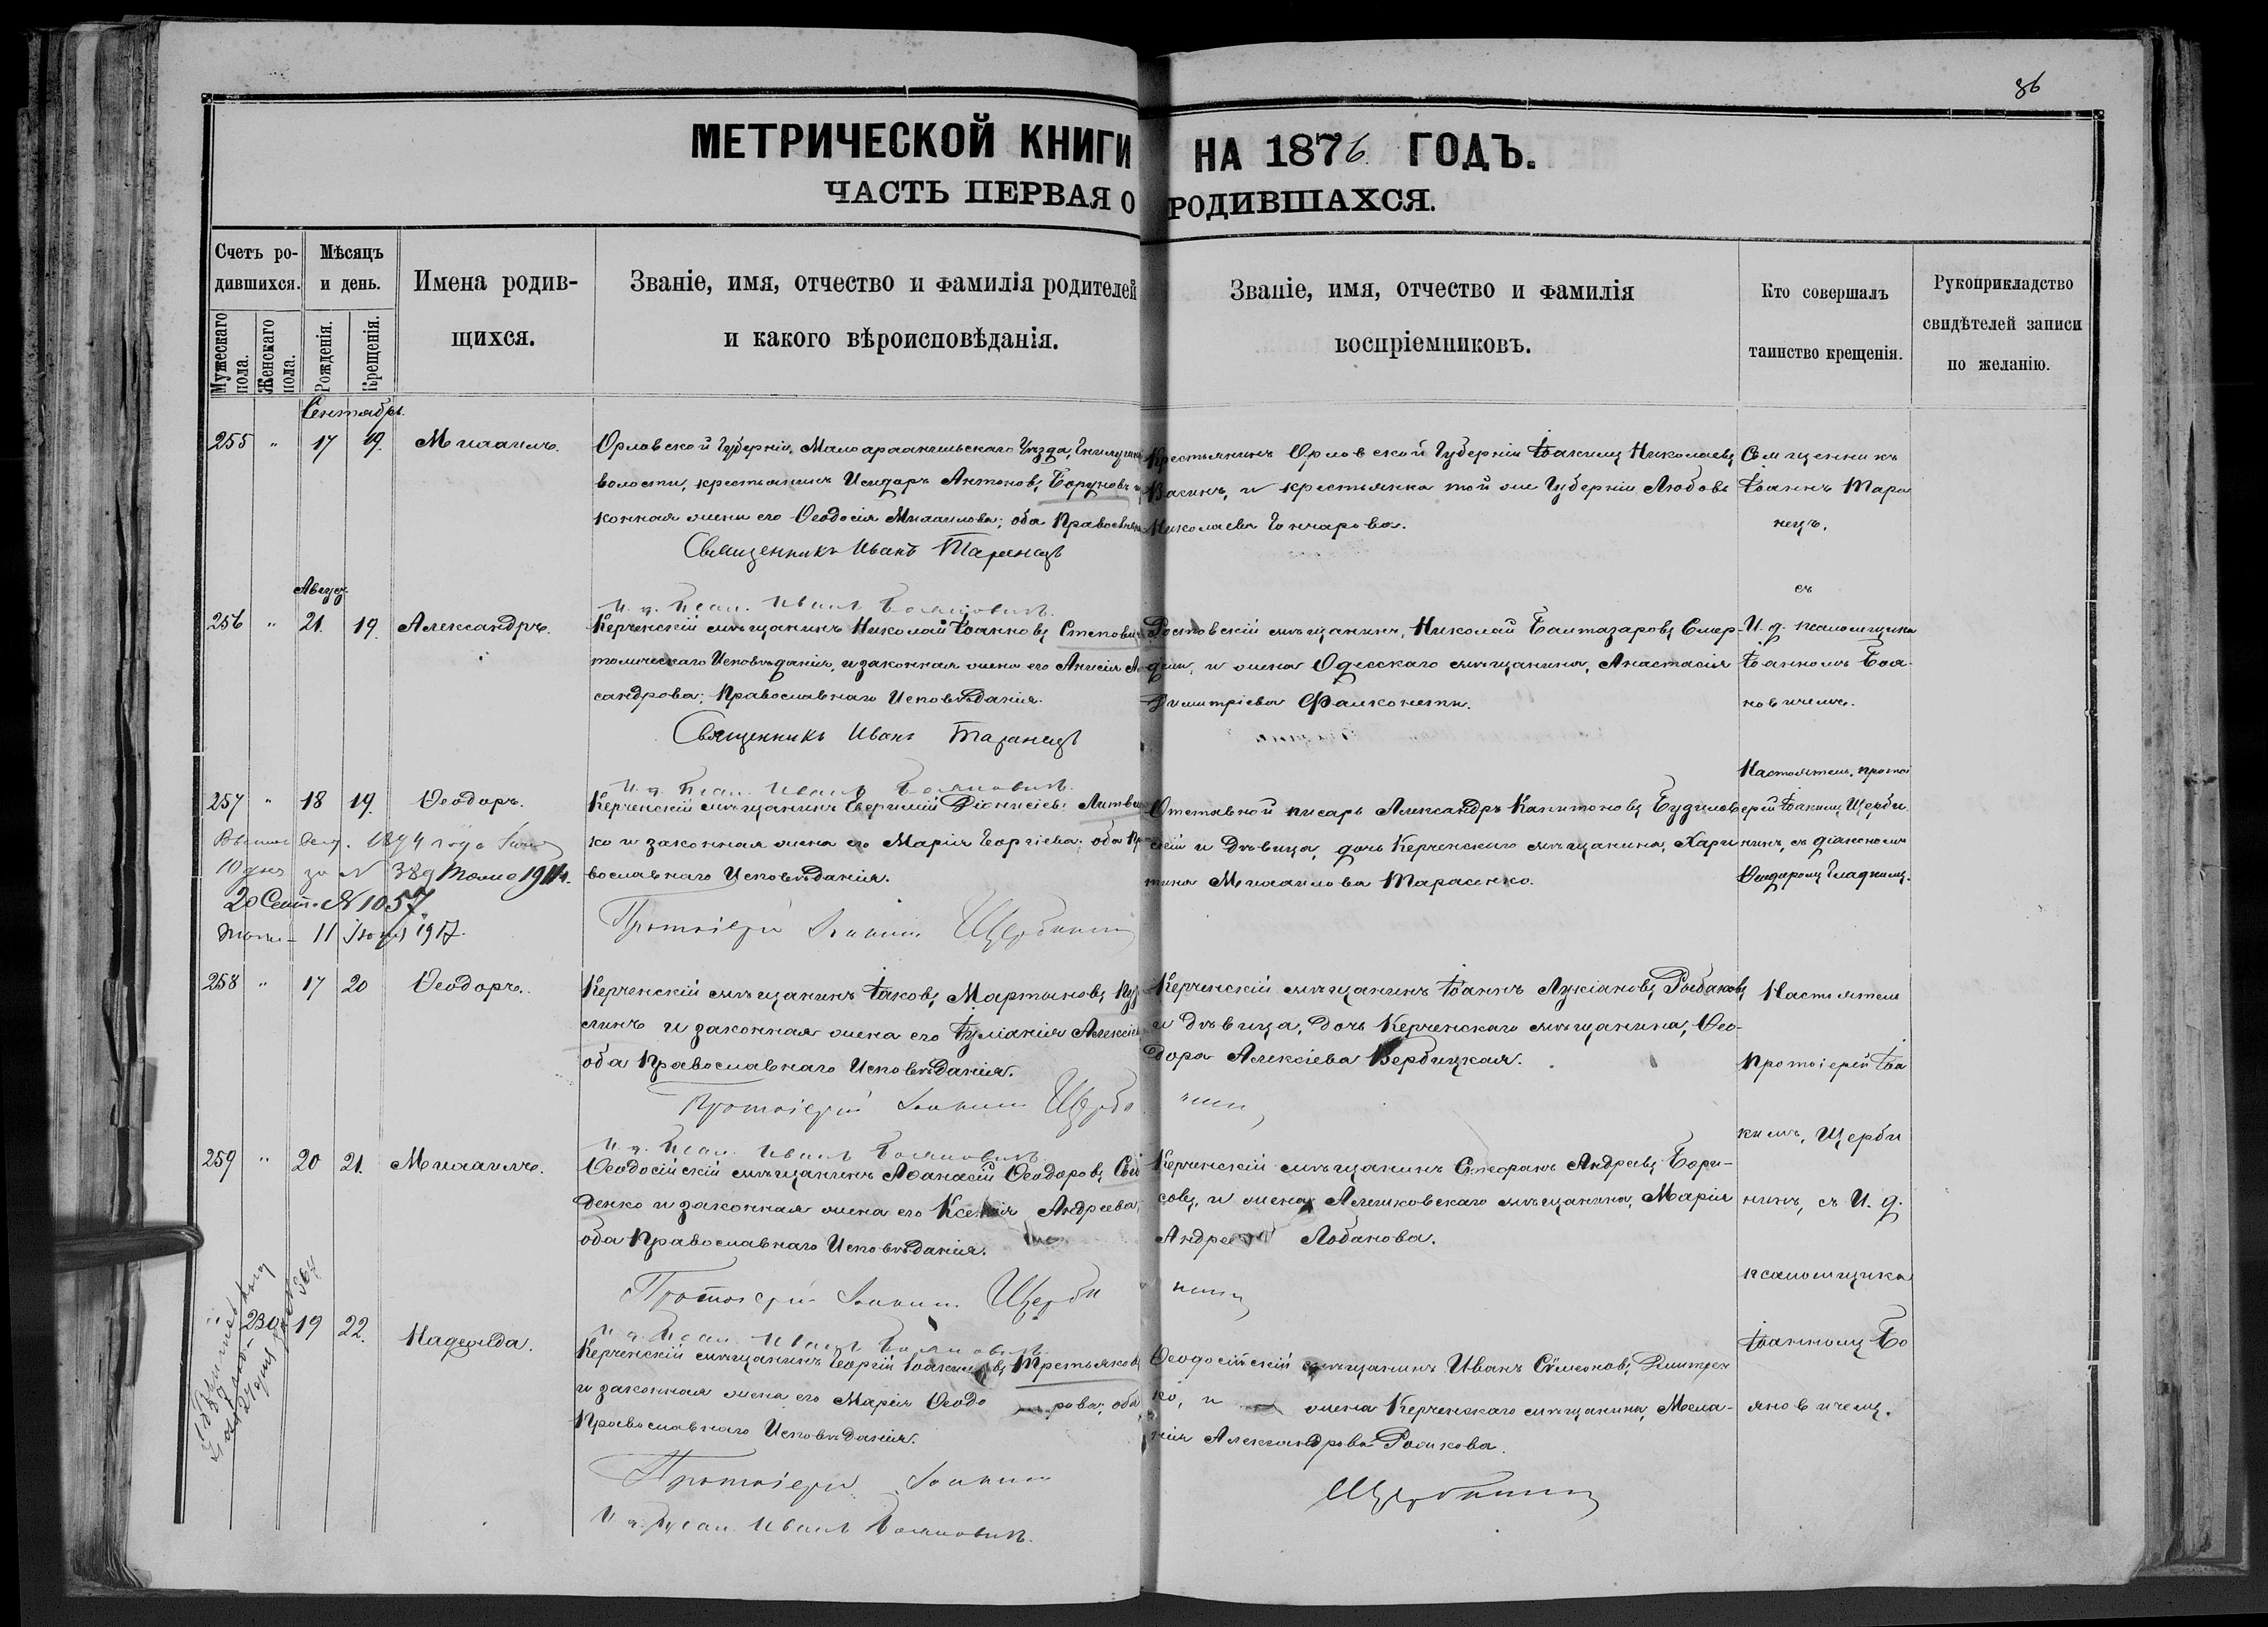 86
МЕТРИЧЕСКОЙ КНИГИ НА 1876 ГОДЪ.
ЧАСТЬ ПЕРВАЯ О РОДИВШАХСЯ.
Счетъ ро-
дившихся.
Мѣсяцъ
и день.
Мужескаго
пола.
Женскаго
пола.
Рожденія.
Крещенія.
Имена родив-
щихся.
Званіе, имя, отчество и фамилія родителей
и какого вѣроисповѣданія.
Званіе, имя, отчество и фамилія
воспріемниковъ.
Кто совершалъ
таинство крещенія.
Рукоприкладство
свидѣтелей записи
по желанію.
Сентябрь.
255 " 17 19. Михаилъ.
Орловской Губерніи, Малоархангельскаго Уѣзда,
волости, крестьянинъ Исидоръ Антоновъ Борзуновъ и
конная жена его Ѳеодосія Михаилова; оба Православн
Священникъ Иванъ Таранецъ
Крестьянинъ Орловской Губерніи Іоакимъ Николаевъ
Вагинъ, и крестьянка той же Губерніи Любовь
Николаева Гончарова.
Священникъ
Іоаннъ Тара
нецъ,
Август.
256 " 21. 19. Александръ.
И. д. Псал. Иванъ Бояновичъ.
Керченскій мѣщанинъ Николай Іоанновъ Степович
толическаго Исповѣданія, и законная жена его Анисія А
сандрова; Православнаго Исповѣданія.
Священникъ Иванъ Таранецъ
Ростовскій мѣщанинъ, Николай Балтазаровъ Смер-
и жена Одесскаго мѣщанина, Анастасія
Димитріева Фалконети.
съ
И. д. псаломщика
Іоанномъ Боя-
новичемъ.
257 " 18 19. Ѳеодоръ.
И. д. Псал. Иванъ Бояновичъ.
Керченскій мѣщанинъ Евфимій Діонисіевъ Литвин
ко и законная жена его Марія Георгіева; оба Пра
вославнаго Исповѣданія.
Протоіерей Іоакимъ Щербининъ
Отставной писарь Александръ Капитоновъ Будилов
скій и Дѣвица, дочь Керченскаго мѣщанина, Хари
тина Михаилова Тарасенко.
Настоятель, протоі
ерей Іоакимъ Щерби
нинъ, съ діакономъ
Ѳеодоромъ Гладкимъ.
1894 года
10 дня за № 389 Тоже 1914.
20 Сент. № 1057
11 Іюня 1917.
258 " 17 20 Ѳеодоръ.
Керченскій мѣщанинъ Іаковъ Мартыновъ Куз
синъ и законная жена его Іуліанія Алексіев
оба Православнаго Исповѣданія.
Протоіерей Іоакимъ Щербининъ
Керченскій мѣщанинъ Іоаннъ Лукіановъ Рыбаковъ
и Дѣвица, дочь Керченскаго мѣщанина, Ѳео-
дора Алексіева Вербицкая.
Настоятель
Протоіерей Іоа
кимъ, Щерби
нинъ, съ И. д.
псаломщика
Іоанномъ Бо
яновичемъ.
259 " 20 21. Михаилъ.
И. д. Псал. Иванъ Бояновичъ.
Ѳеодосійскій мѣщанинъ Аѳанасій Ѳеодоровъ
денко и законная жена его Ксенія Андреева,
оба Православнаго Исповѣданія.
Протоіерей Іоакимъ Щербининъ
Керченскій мѣщанинъ Стефанъ Андреевъ Бори-
совъ, и жена Алешковскаго мѣщанина, Марія
Андреева Лобанова.
" 230 19 22. Надежда.
И. д. Псал. Иванъ Бояновичъ.
Керченскій мѣщанинъ Георгій Іоакимовъ Третьяковъ
и законная жена его Марія Ѳеодорова, оба
Православнаго Исповѣданія.
Протоіерей Іоакимъ
Щербининъ
И. д. Псал. Иванъ Бояновичъ.
Ѳеодосійскій мѣщанинъ Иванъ Симеоновъ Дмитрен
ко, и жена Керченскаго мѣщанина, Мела-
нія Александрова Рожкова.